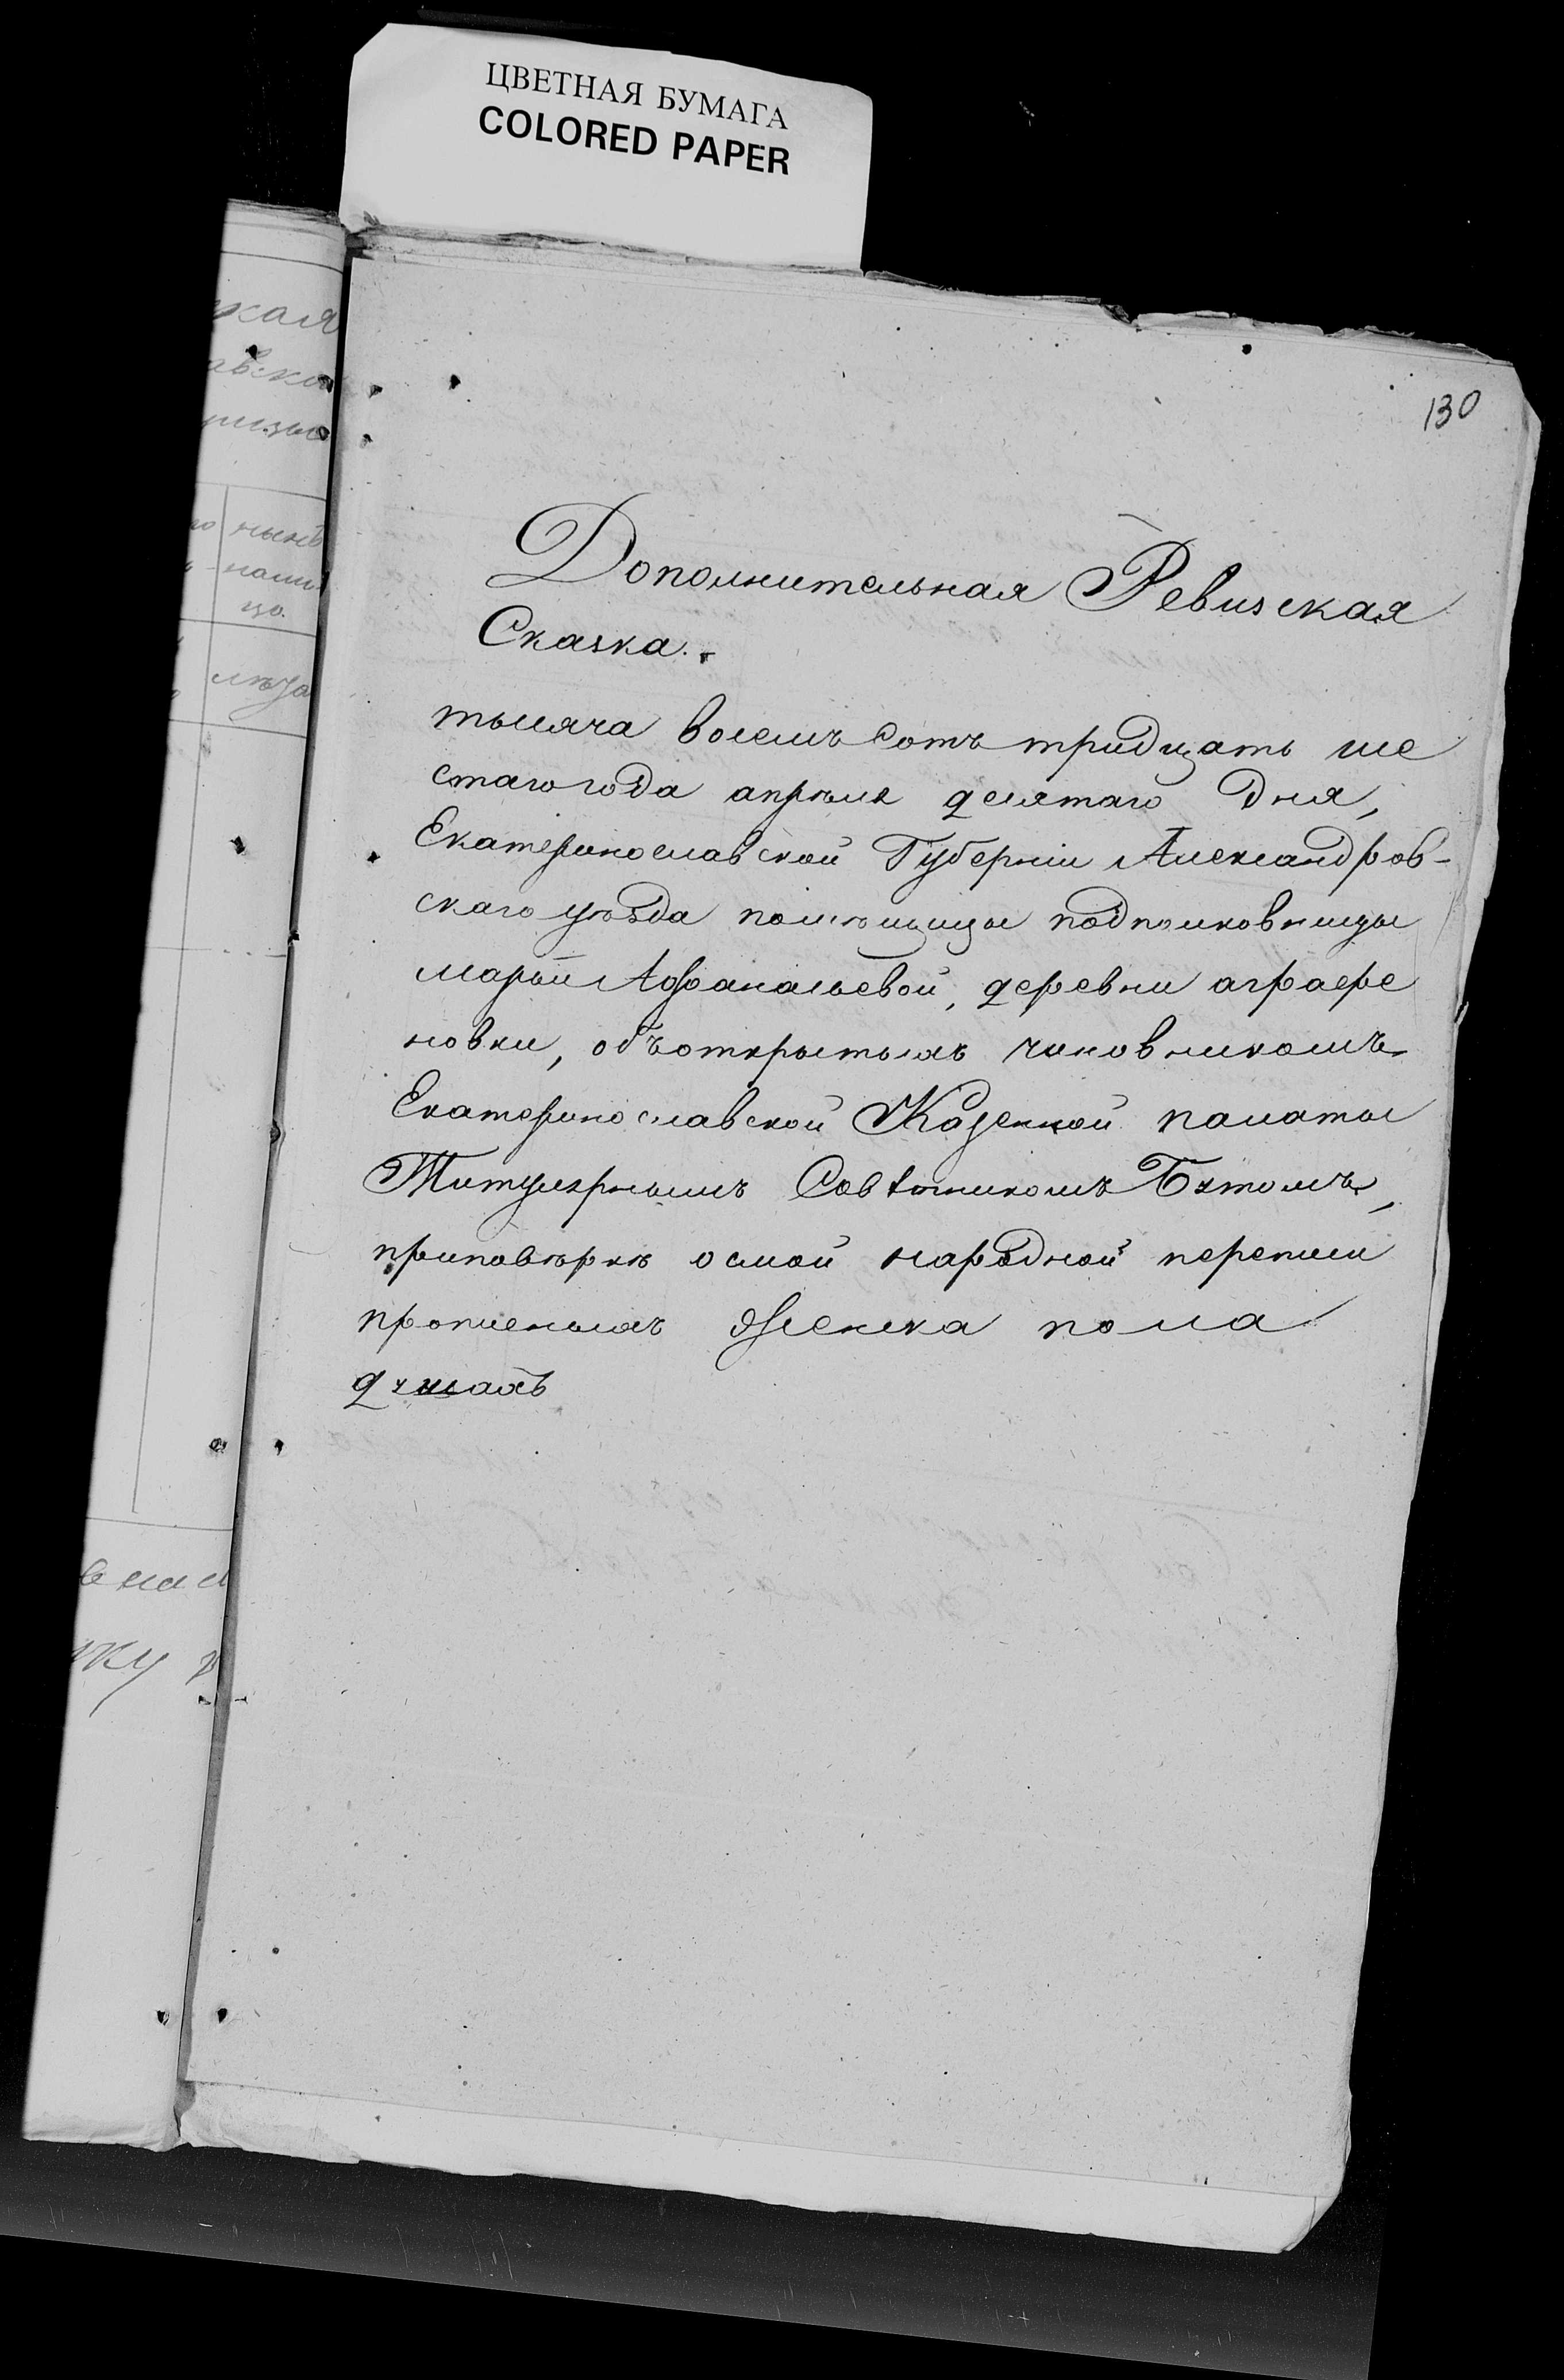 ЦВЕТНАЯ БУМАГА
COLORED PAPER
130
Дополнительная Ревизская
Сказка.
тысяча восемь сотъ тридцать ше
стаго года апрѣля десятаго дня,
Екатеринославской Губерніи Александров-
скаго уѣзда помѣщицы подполковницы
марьи Афанасьевой, деревни аграфе
новки, объ открытыхъ чиновникомъ
Екатеринославской Казенной палаты
Титулярнымъ Совѣтникомъ
при повѣркѣ осмой народной переписи
прописныхъ женска пола
душахъ